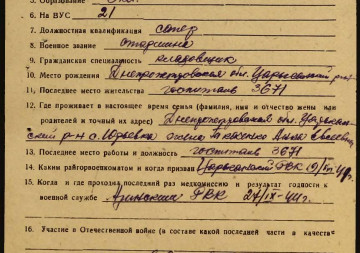 5. Образование
6. На ВУС 21
7. Должностная квалификация сапер
8. Военное звание старшина
9. Гражданская специальность кладовщик
10. Место рождения Днепропетровская обл. Царычанский
11. Последнее место жительства госпиталь 3671
12. Где проживает в настоящее время семья (фамилия, имя и отчество жены или
родителей и точный их адрес) Днепропетровская обл. Царычан-
ский р-н с. Юрьевка жена Анна
13. Последнее место работы и должность госпиталь 3671
14. Каким райгорвоенкоматом и когда призван Царычанский РВК
15. Когда и где проходил последний раз медкомиссию и результат годности к
военной службе РВК 27/IX-44г.
16. Участие в Отечественной войне (в составе какой последней части в качестве